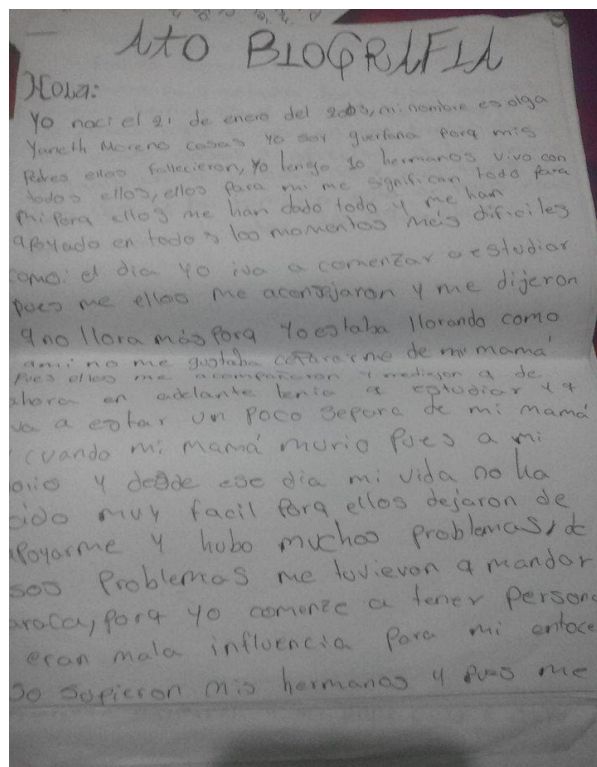 AtO BIOGRAFIA
Hola:
Yo naci el 21 de enero del 2003, mi nombre es olga
Yaneth Moreno casas yo soy guerfana porq mis
Padres ellos fallecieron, Yo tengo 10 hermanos vivo con
todos ellos, ellos para mi me significan todo para
mi porq ellos me han dado todo y me han
apoyado en todos los momentos más dificiles
como: el dia yo iva a comenzar a estudiar
pues me ellos me aconsejaron y me dijeron
q no llora más porq Yo estaba llorando como
ami no me gustaba separarme de mi mamá
Pues ellos me acompañaron y me dijeron q de
ahora en adelante tenia q estudiar y q
va a estar un poco separa de mi mamá
cuando mi mamá murio pues a mi
y desde ese dia mi vida no ha
sido muy facil porq ellos dejaron de
apoyarme y hubo muchos problemas, de
sos problemas me tuvieron q mandar
araca, porq yo comenze a tener person
eran mala influencia para mi entoce
so supieron mis hermanos y pues me